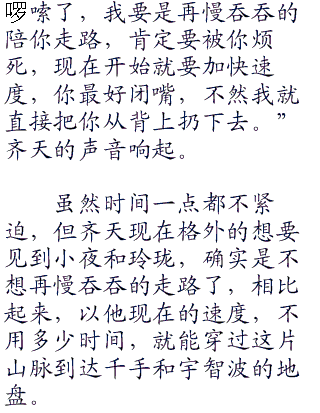 啰嗦了，我要是再慢吞吞的
陪你走路，肯定要被你烦
死，现在开始就要加快速
度，你最好闭嘴，不然我就
直接把你从背上扔下去。”
齐天的声音响起。
虽然时间一点都不紧
迫，但齐天现在格外的想要
见到小夜和玲珑，确实是不
想再慢吞吞的走路了，相比
起来，以他现在的速度，不
用多少时间，就能穿过这片
山脉到达千手和宇智波的地
盘。